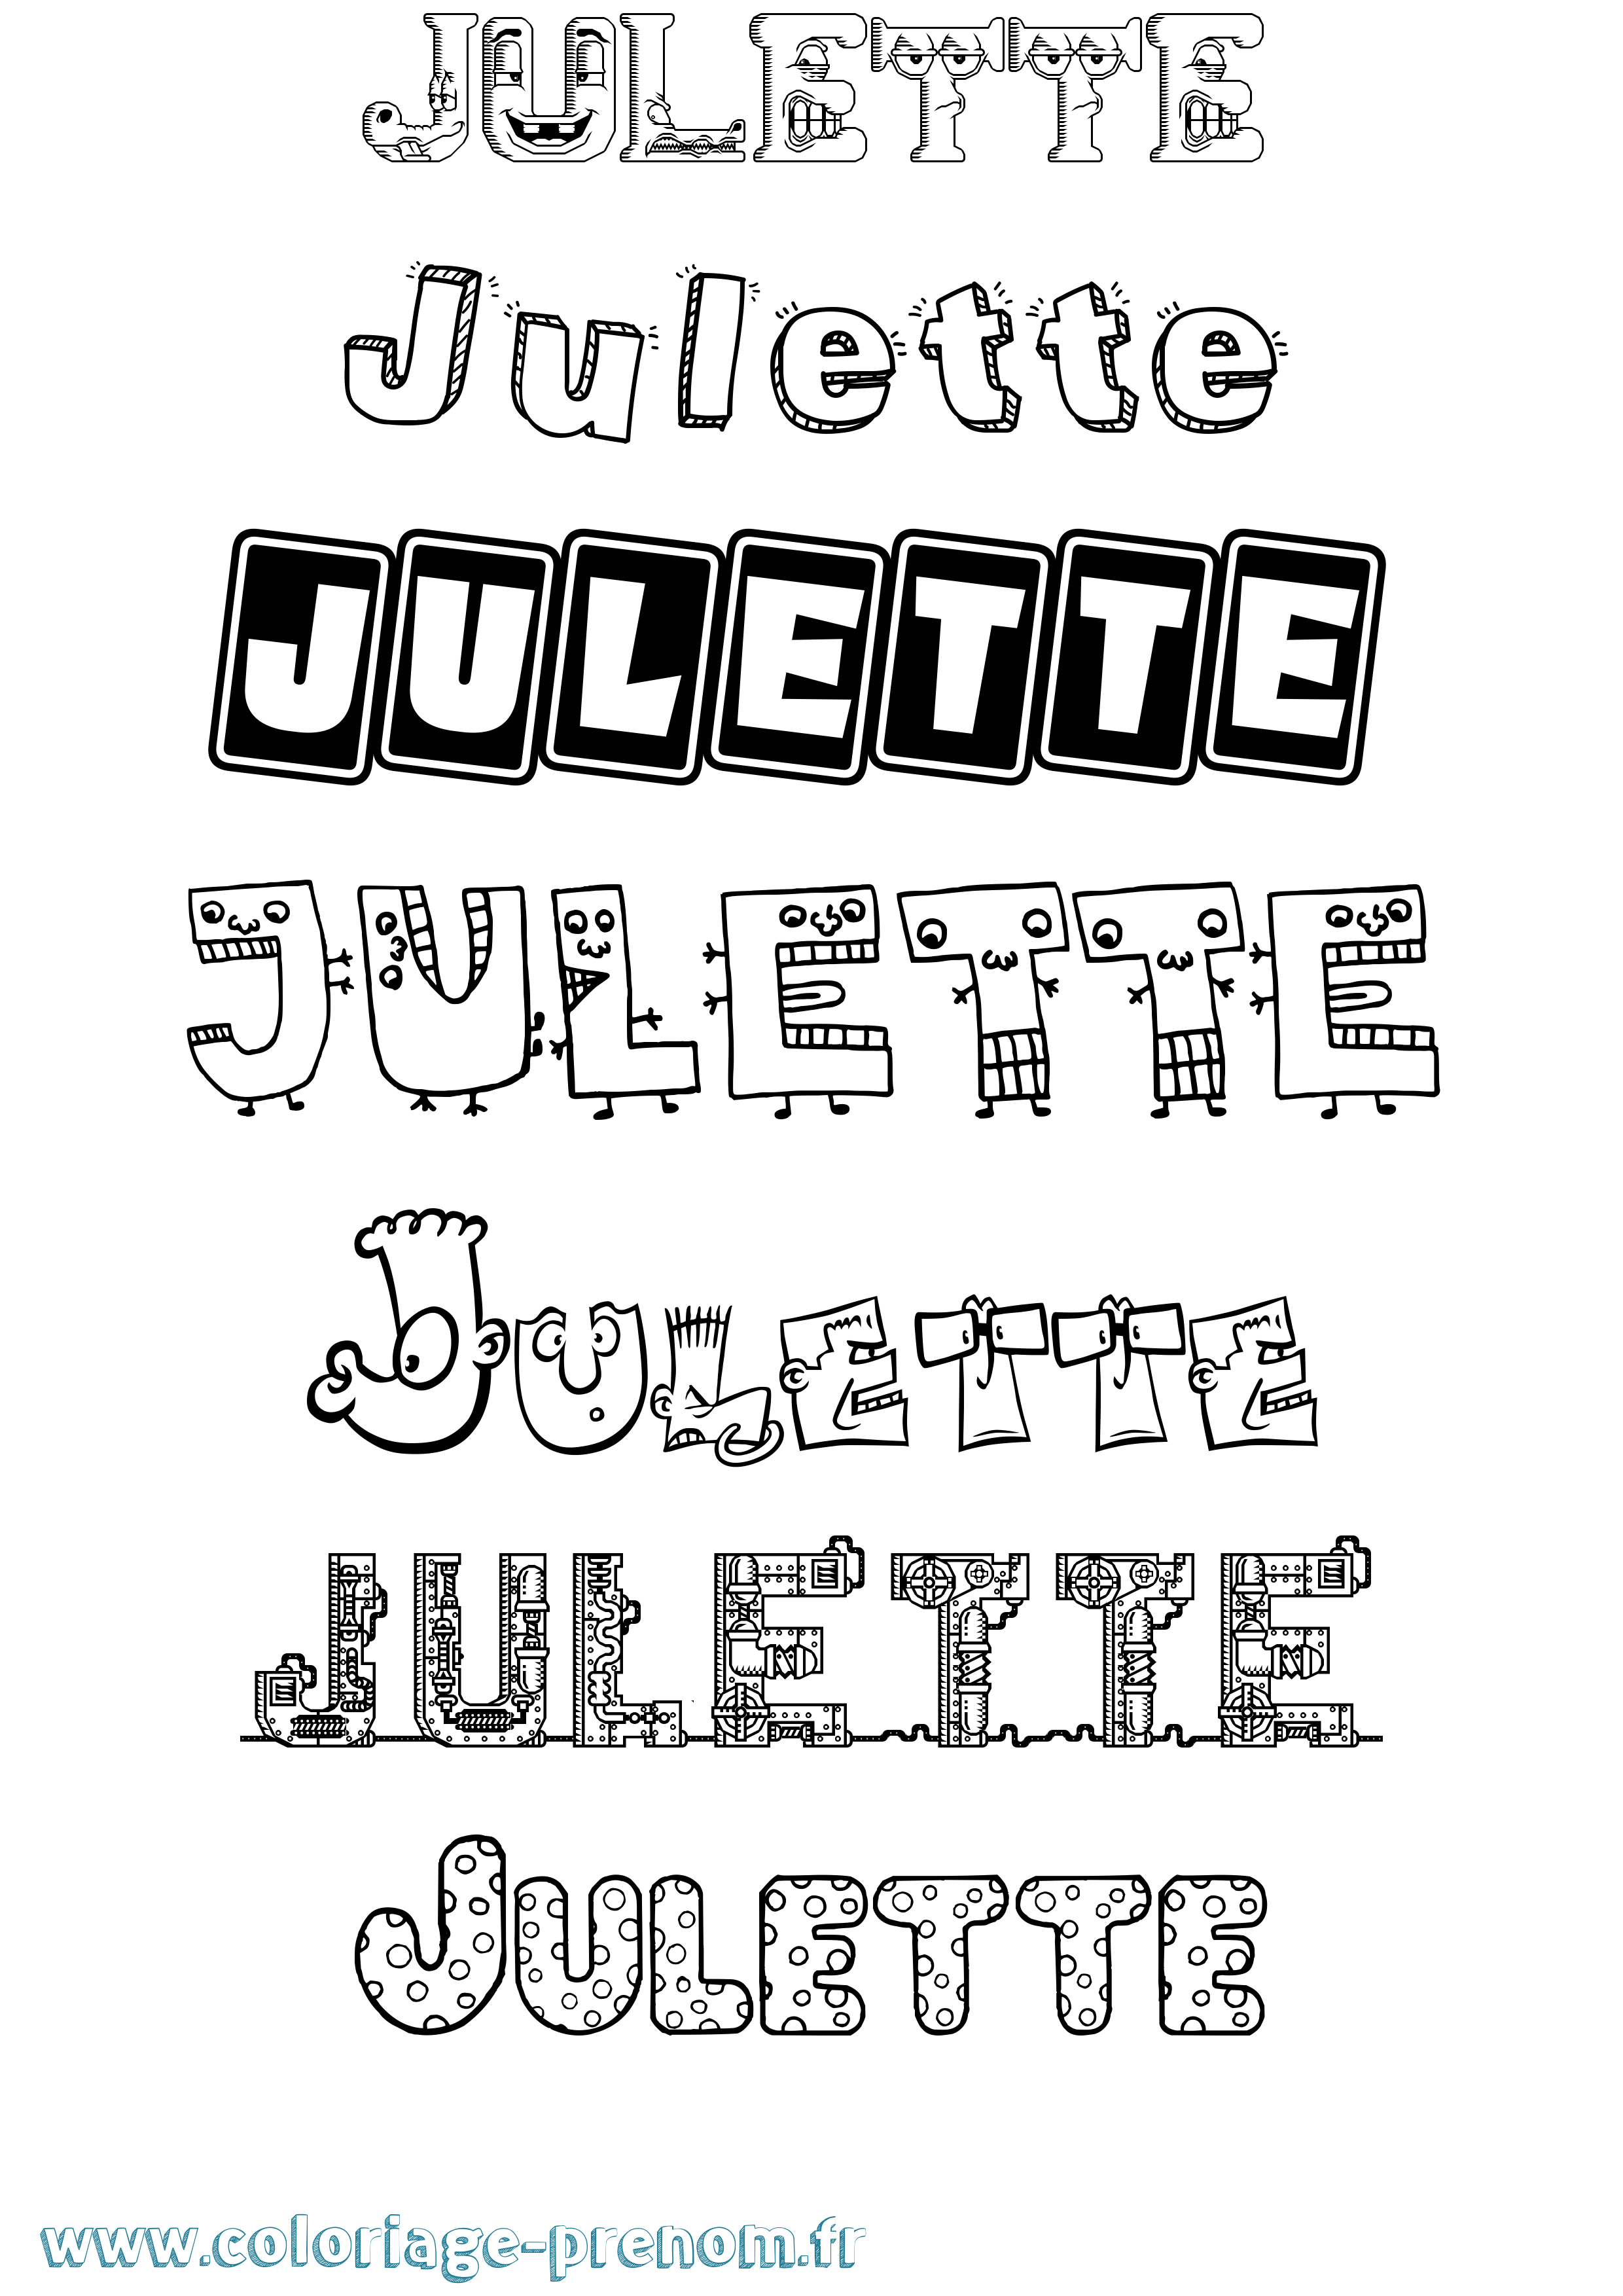 JULETTE
Julette
JULETTE
JULETTE
JULETTE
JULETTE
JULETTE
www.coloriage-prenom.fr